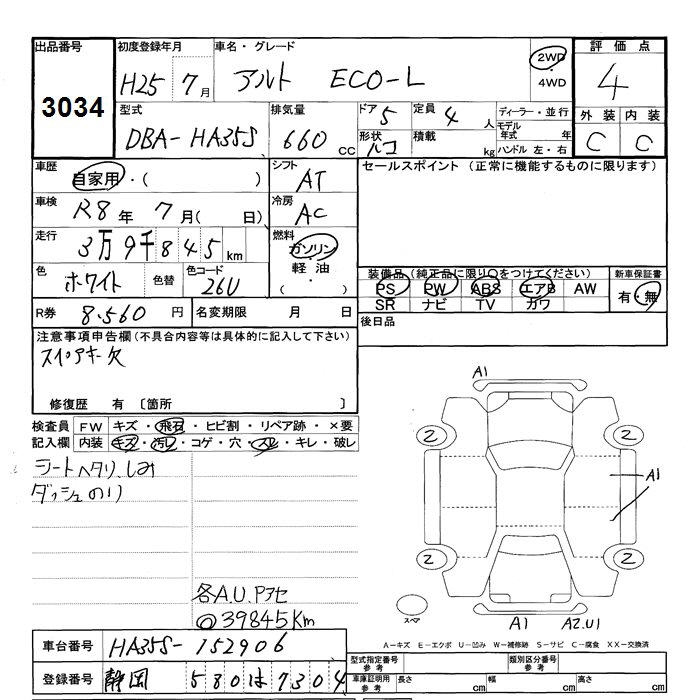 出品番号
3034
初度登録年月
H25 7月
車名・グレード
アルト ECO-L
2WD
・
4WD
評価点
4
型式
DBA-HA35S
排気量
660 cc
ドア 5
定員 4 人
形状
積載 kg
ディーラー・並行
モデル
年式 年
ハンドル 左・右
外装 内装
C C
車歴
自家用・( )
シフト
AT
セールスポイント (正常に機能するものに限ります)
車検
R8年 7月( 日)
冷房
AC
走行
3万9千845km
燃料
ガソリン
・
軽油
( ・ )
色
ホワイト
色替
色コード
26U
装備品(純正品に限り○をつけてください)
新車保証書
PS PW ABS エアB AW
有・無
SR ナビ TV カワ
R券 8.560円
名変期限 月 日
後日品
注意事項申告欄(不具合内容等は具体的に記入して下さい)
スペアキー欠
修復歴 有 〔箇所 〕
検査員 FW キズ・飛石・ヒビ割・リペア跡・×要
記入欄 内装 キズ・汚レ・コゲ・穴・スレ・キレ・破レ
シートヘタリ、しみ
ダッシュのり
各A.U.Pアセ
◎39845Km
A1
2 2
A1
2 2
スペア
A1 A2.U1
A-キズ E-エクボ U-凹み W-補修跡 S-サビ C-腐食 XX-交換済
車台番号 HA35S-152906
登録番号 静岡 580は7304
型式指定番号
参考
類別区分番号
参考
車庫証明用
参考
長さ cm
幅 cm
高さ cm